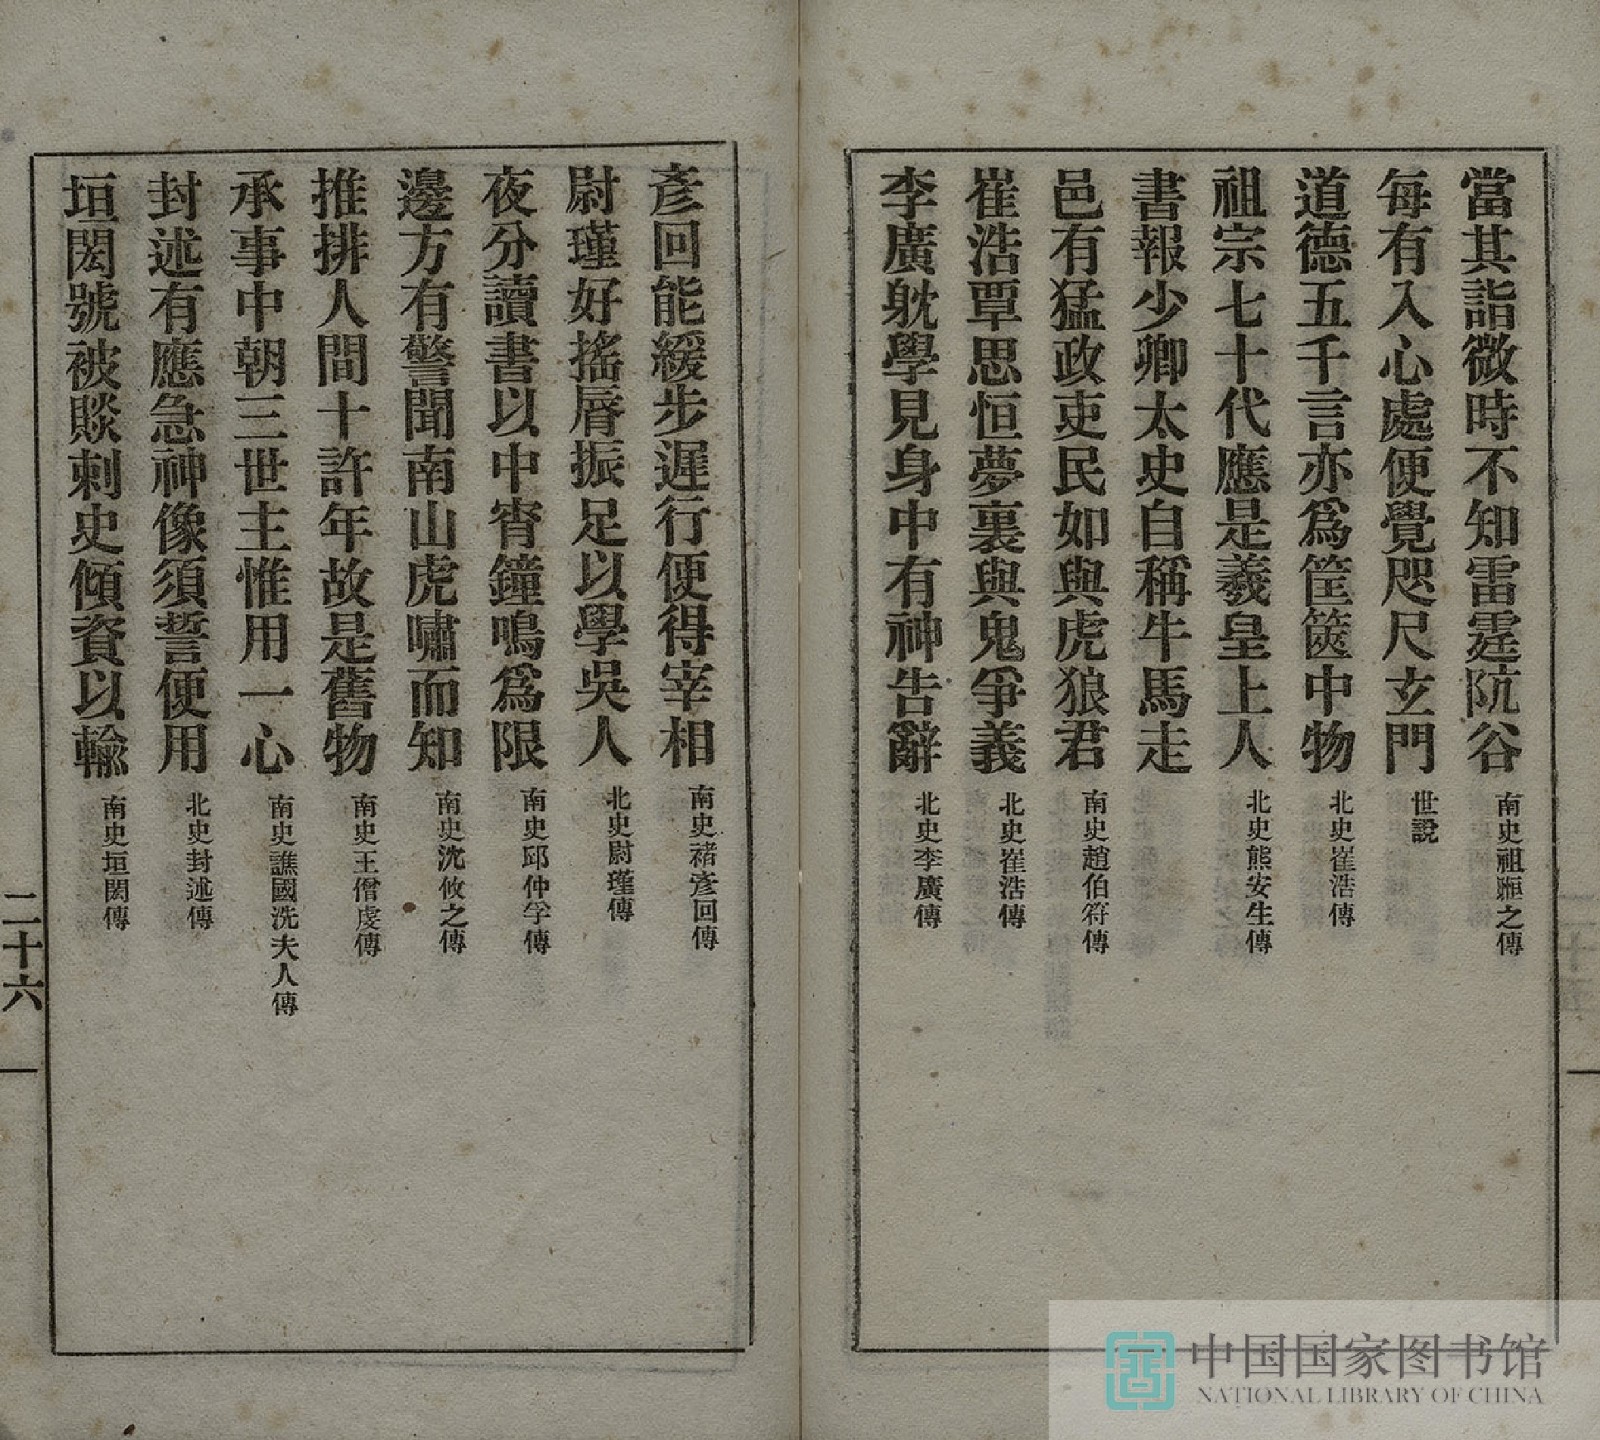 當其詣微時不知雷霆阬谷 南史祖暅之傳
每有入心處便覺咫尺玄門 世說
道德五千言亦爲筐篋中物 北史崔浩傳
祖宗七十代應是羲皇上人 北史熊安生傳
書報少卿太史自稱牛馬走
邑有猛政吏民如與虎狼君 南史趙伯符傳
崔浩覃思恒夢裏與鬼爭義 北史崔浩傳
李廣躭學見身中有神告辭 北史李廣傳
彥回能緩步遲行便得宰相 南史褚彥回傳
尉瑾好搖脣振足以學吳人 北史尉瑾傳
夜分讀書以中宵鐘鳴爲限 南史邱仲孚傳
邊方有警聞南山虎嘯而知 南史沈攸之傳
推排人間十許年故是舊物 南史王僧虔傳
承事中朝三世主惟用一心 南史譙國洗夫人傳
封述有應急神像須誓便用 北史封述傳
垣閎號被賧刺史傾資以輸 南史垣閎傳
二十六
中国国家图书馆
NATIONAL LIBRARY OF CHINA